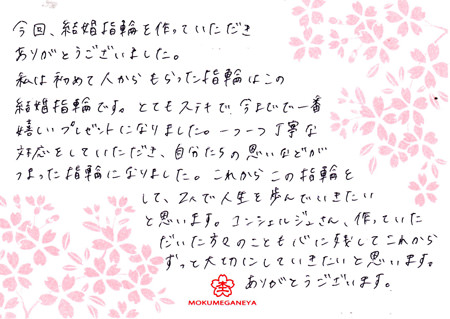 今回、結婚指輪を作っていただき
ありがとうございました。
私は初めて人からもらった指輪はこの
結婚指輪です。とてもステキで、今までで一番
嬉しいプレゼントになりました。一つ一つ丁寧な
対応をしていただき、自分たちの思いなどが
つまった指輪になりました。これからこの指輪を
して、2人で人生を歩んでいきたい
と思います。コンシェルジュさん、作っていた
だいた方々のことも心に残してこれから
ずっと大切にしていきたいと思います。
ありがとうございます。
MOKUMEGANEYA